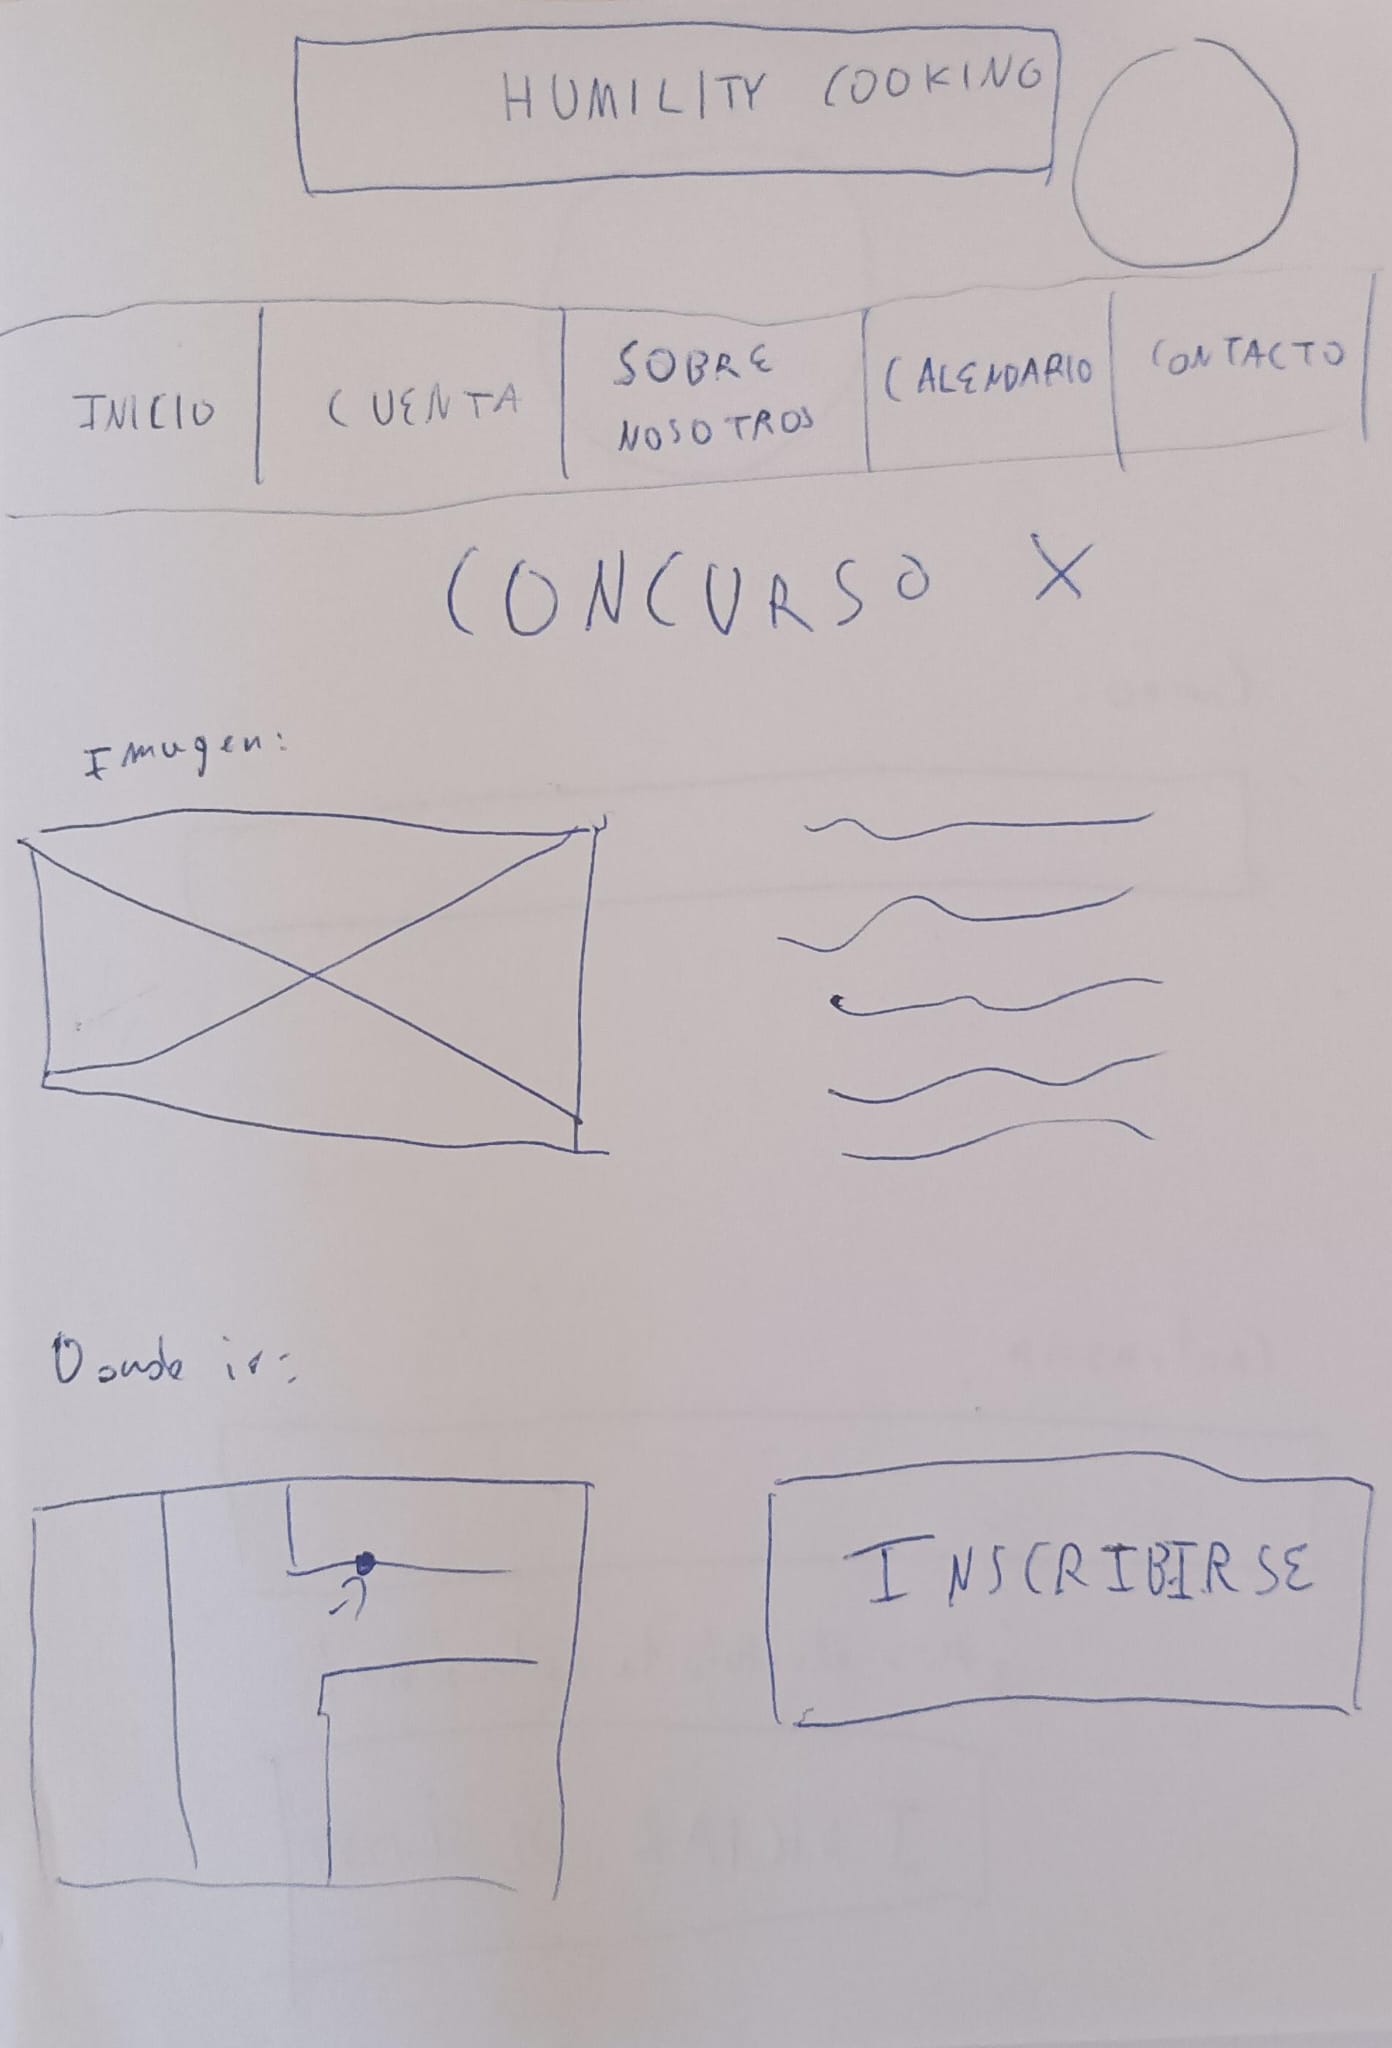 HUMILITY COOKING
INICIO
CUENTA
SOBRE
NOSOTROS
CALENDARIO
CONTACTO
CONCURSO X
Imagen:
Donde ir:
INSCRIBIRSE